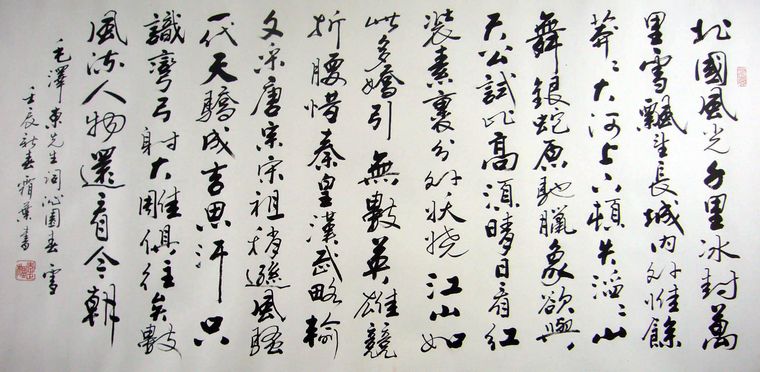 北國風光千里冰封萬
里雪飄望長城內外惟餘
莽々大河上下頓失滔々山
舞銀蛇原馳臘象欲與
天公試比高須晴日看紅
裝素裹分外妖嬈江山如
此多嬌引無數英雄競
折腰惜秦皇漢武略輸
文采唐宗宋祖稍遜風騷
一代天驕成吉思汗只
識彎弓射大雕俱往矣數
風流人物還看今朝
毛澤東先生詞沁園春雪
壬辰新春霜葉書